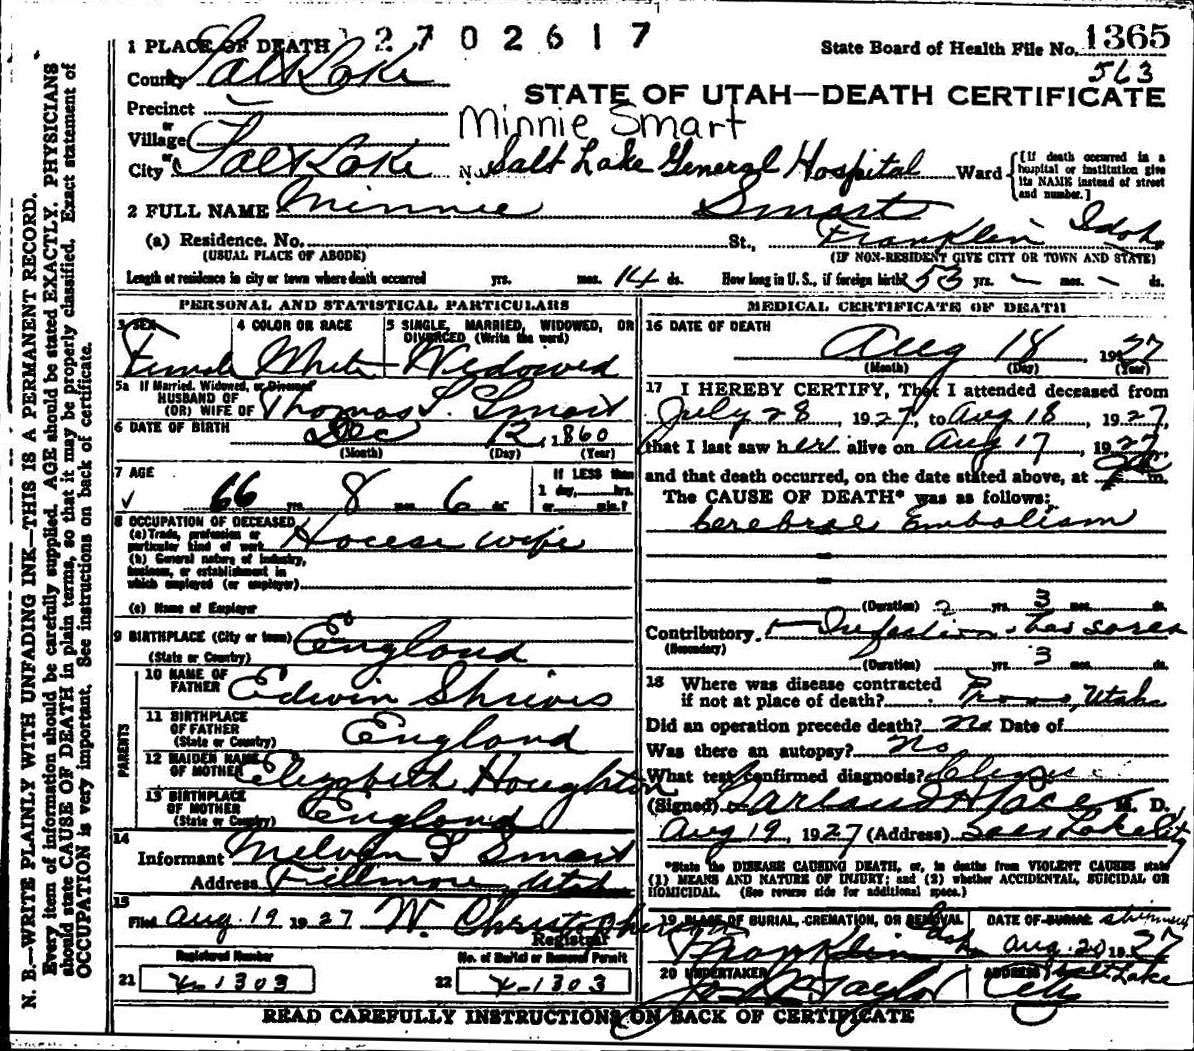 1 PLACE OF DEATH 2702617
State Board of Health File No. 1365
563
County Salt Lake
STATE OF UTAH—DEATH CERTIFICATE
Precinct
Minnie Smart
or
Village
or
City Salt Lake No. Salt Lake General Hospital Ward
[If death occurred in a hospital or institution give its NAME instead of street and number.]
2 FULL NAME Minnie Smart
(a) Residence. No. St., Franklin Idaho
(USUAL PLACE OF ABODE) (IF NON-RESIDENT GIVE CITY OR TOWN AND STATE)
Length of residence in city or town where death occurred yrs. mos. 14 ds. How long in U. S., if foreign birth? 53 yrs. — mos. — ds.
PERSONAL AND STATISTICAL PARTICULARS
3 SEX 4 COLOR OR RACE 5 SINGLE, MARRIED, WIDOWED, OR DIVORCED (Write the word)
Female White Widowed
5a If Married, Widowed, or Divorced
HUSBAND OF
(OR) WIFE OF Thomas S. Smart
6 DATE OF BIRTH Dec 12, 1860
(Month) (Day) (Year)
7 AGE If LESS than
66 yrs. 8 mos. 6 ds. 1 day, hrs.
or min.?
8 OCCUPATION OF DECEASED
(a) Trade, profession or particular kind of work House wife
(b) General nature of industry, business, or establishment in which employed (or employer)
(c) Name of Employer
9 BIRTHPLACE (City or town) England
(State or Country)
PARENTS
10 NAME OF FATHER Edwin Shrives
11 BIRTHPLACE OF FATHER England
(State or Country)
12 MAIDEN NAME OF MOTHER Elizabeth Houghton
13 BIRTHPLACE OF MOTHER England
(State or Country)
14
Informant Melvin S Smart
Address Fillmore, Utah
15
Filed Aug. 19 1927 W. Christopherson
Registrar
Registered Number No. of Burial or Removal Permit
21 X-1303 22 X-1303
MEDICAL CERTIFICATE OF DEATH
16 DATE OF DEATH
Aug 18, 1927
(Month) (Day) (Year)
17 I HEREBY CERTIFY, That I attended deceased from
July 28, 1927, to Aug 18, 1927,
that I last saw her alive on Aug 17, 1927,
and that death occurred, on the date stated above, at m.
The CAUSE OF DEATH* was as follows:
Cerebral Embolism
(Duration) 2 yrs. 3 mos. ds.
Contributory Infection bed sores
(Secondary)
(Duration) yrs. 3 mos. ds.
18 Where was disease contracted
if not at place of death? Provo, Utah
Did an operation precede death? No Date of
Was there an autopsy? No
What test confirmed diagnosis?
(Signed) Garland H Pace M. D.
Aug 19, 1927 (Address) Salt Lake City
*State the DISEASE CAUSING DEATH, or, in deaths from VIOLENT CAUSES state
(1) MEANS AND NATURE OF INJURY; and (2) whether ACCIDENTAL, SUICIDAL OR
HOMICIDAL. (See reverse side for additional space.)
19 PLACE OF BURIAL, CREMATION, OR REMOVAL DATE OF BURIAL shipment
Franklin Idaho Aug. 20 1927
20 UNDERTAKER ADDRESS Salt Lake
Taylor City
READ CAREFULLY INSTRUCTIONS ON BACK OF CERTIFICATE
N. B.—WRITE PLAINLY WITH UNFADING INK—THIS IS A PERMANENT RECORD.
Every item of information should be carefully supplied. AGE should be stated EXACTLY. PHYSICIANS
should state CAUSE OF DEATH in plain terms, so that it may be properly classified. Exact statement of
OCCUPATION is very important. See instructions on back of certificate.